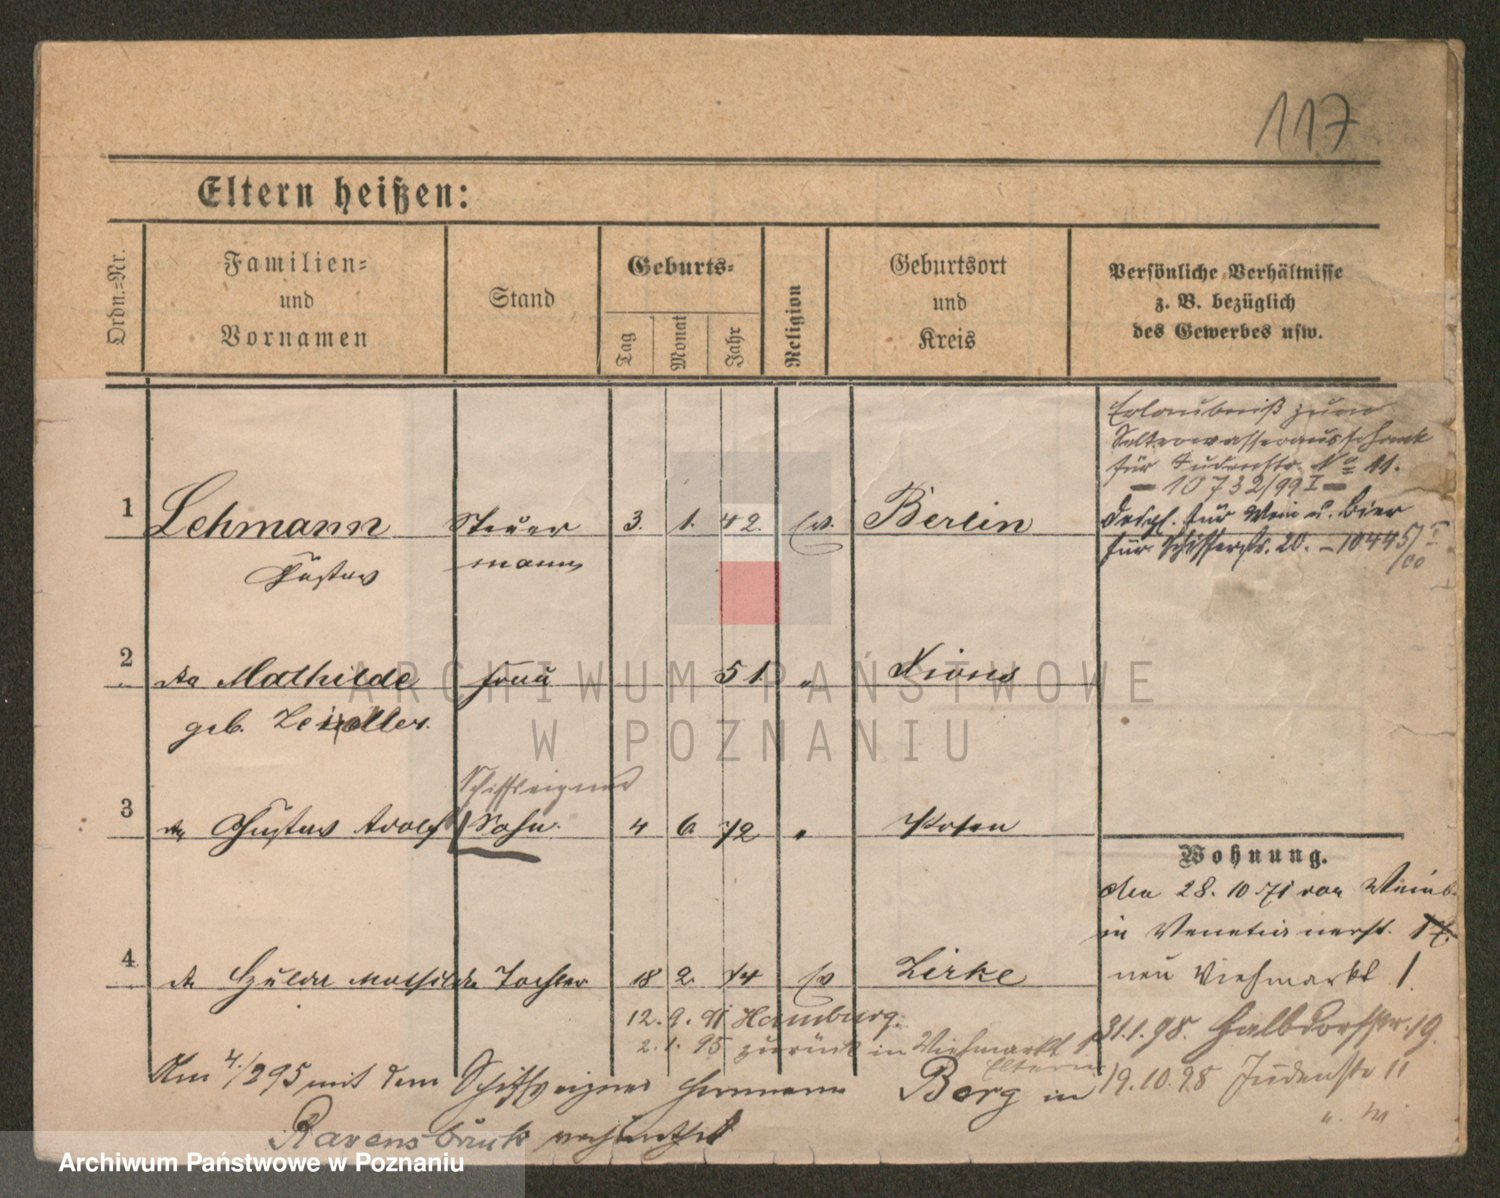 117
Eltern heißen:
Ordn.=Nr.
Familien=
und
Vornamen
Stand
Geburts=
Tag
Monat
Jahr
Religion
Geburtsort
und
Kreis
Persönliche Verhältnisse
z. B. bezüglich
des Gewerbes usw.
Erlaubniß zum
Selterwasserausschank
für Judenstr. No 11.
— 10732/99 I —
desgl. für Wein u. Bier
für Schifferstr. 20. — 10445/00 I
1 Lehmann Steuer 3. 1. 42. ev. Berlin
Gustav mann
2 Mathilde Frau 51. " Xions
geb.
Schiffseigner
3 Gustav Adolf Sohn. 4 6 72 " Posen
Wohnung.
den 28. 10 71 von
in Venetianerst. 17.
neu Viehmarkt 1.
4 Hulda Mathilde Tochter 18 2. 74 ev Zirke
12. 9. 91 Hamburg.
2. 1. 95 zurück in Viehmarkt 1
Eltern
31. 1. 98. Halbdorfstr. 19.
19. 10. 98 Judenstr 11
Am 4./2 95 mit dem Schiffseigner Hermann Berg in
Ravensbrück verheirathet
ARCHIWUM PAŃSTWOWE
W POZNANIU
Archiwum Państwowe w Poznaniu